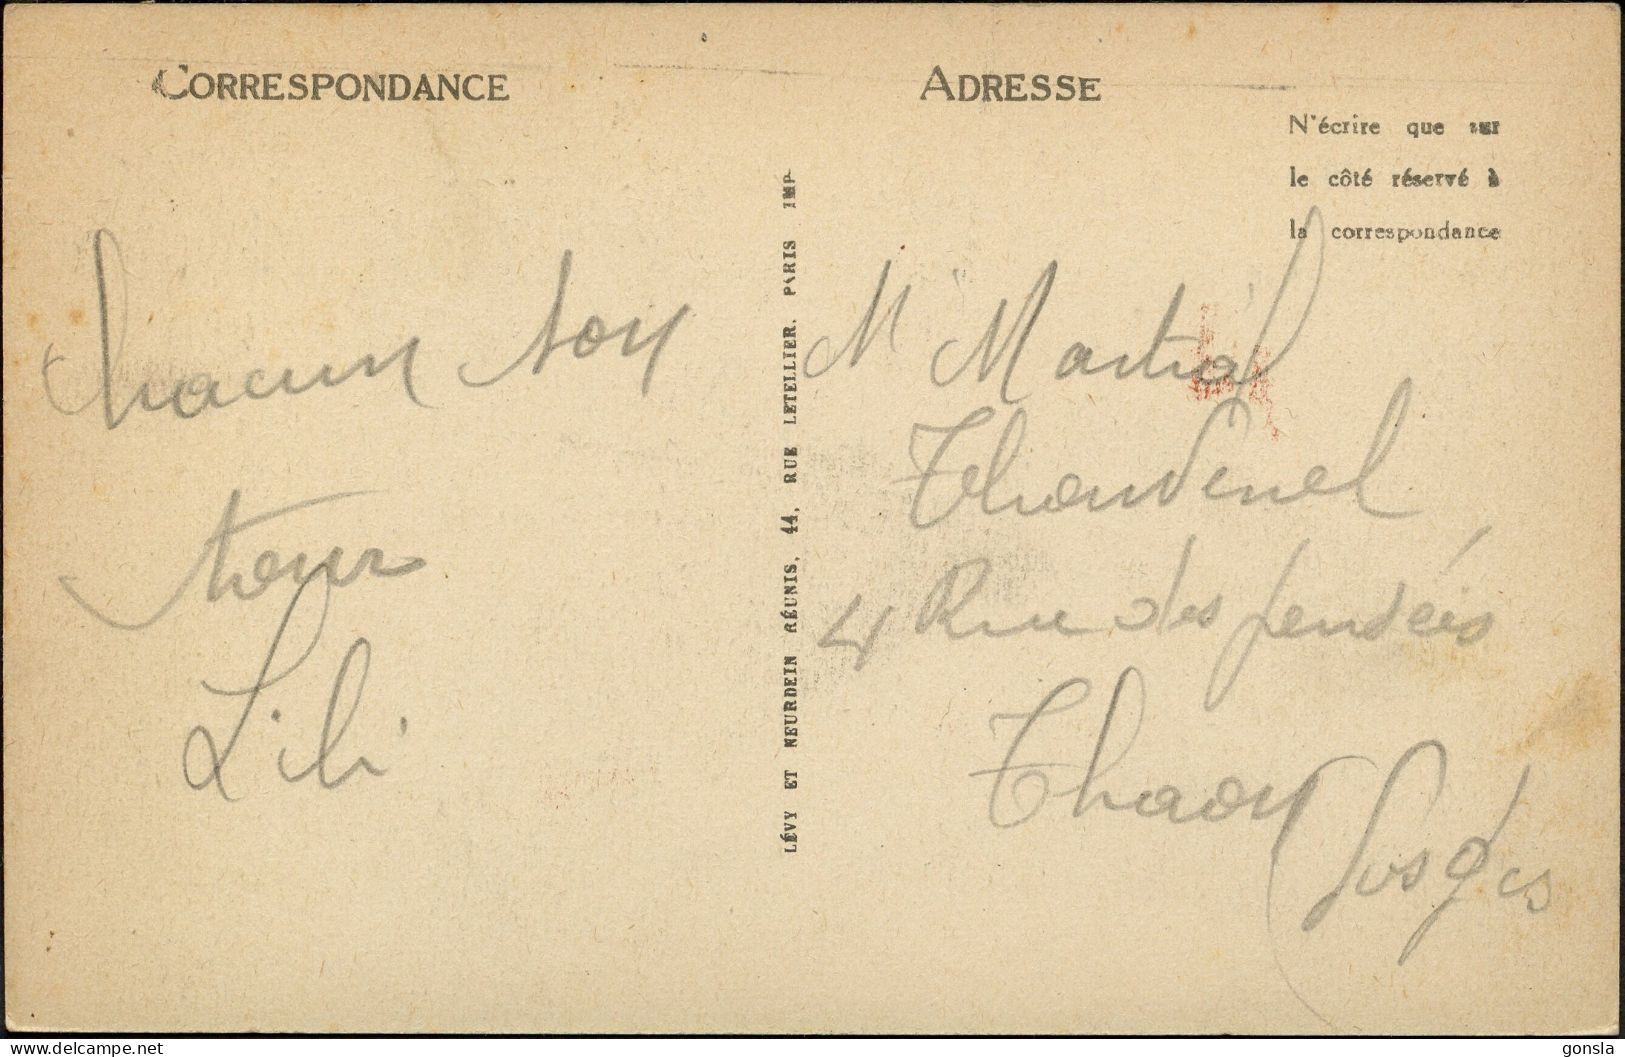 CORRESPONDANCE
chacun son
tour
Lili
LÉVY ET NEURDEIN RÉUNIS, 44, RUE LETELLIER, PARIS IMP
ADRESSE
N'écrire que sur
le côté réservé à
la correspondance
M Martial
Thouvenel
4 Rue des pensées
Thaon
Vosges
delcampe.net
gonsla